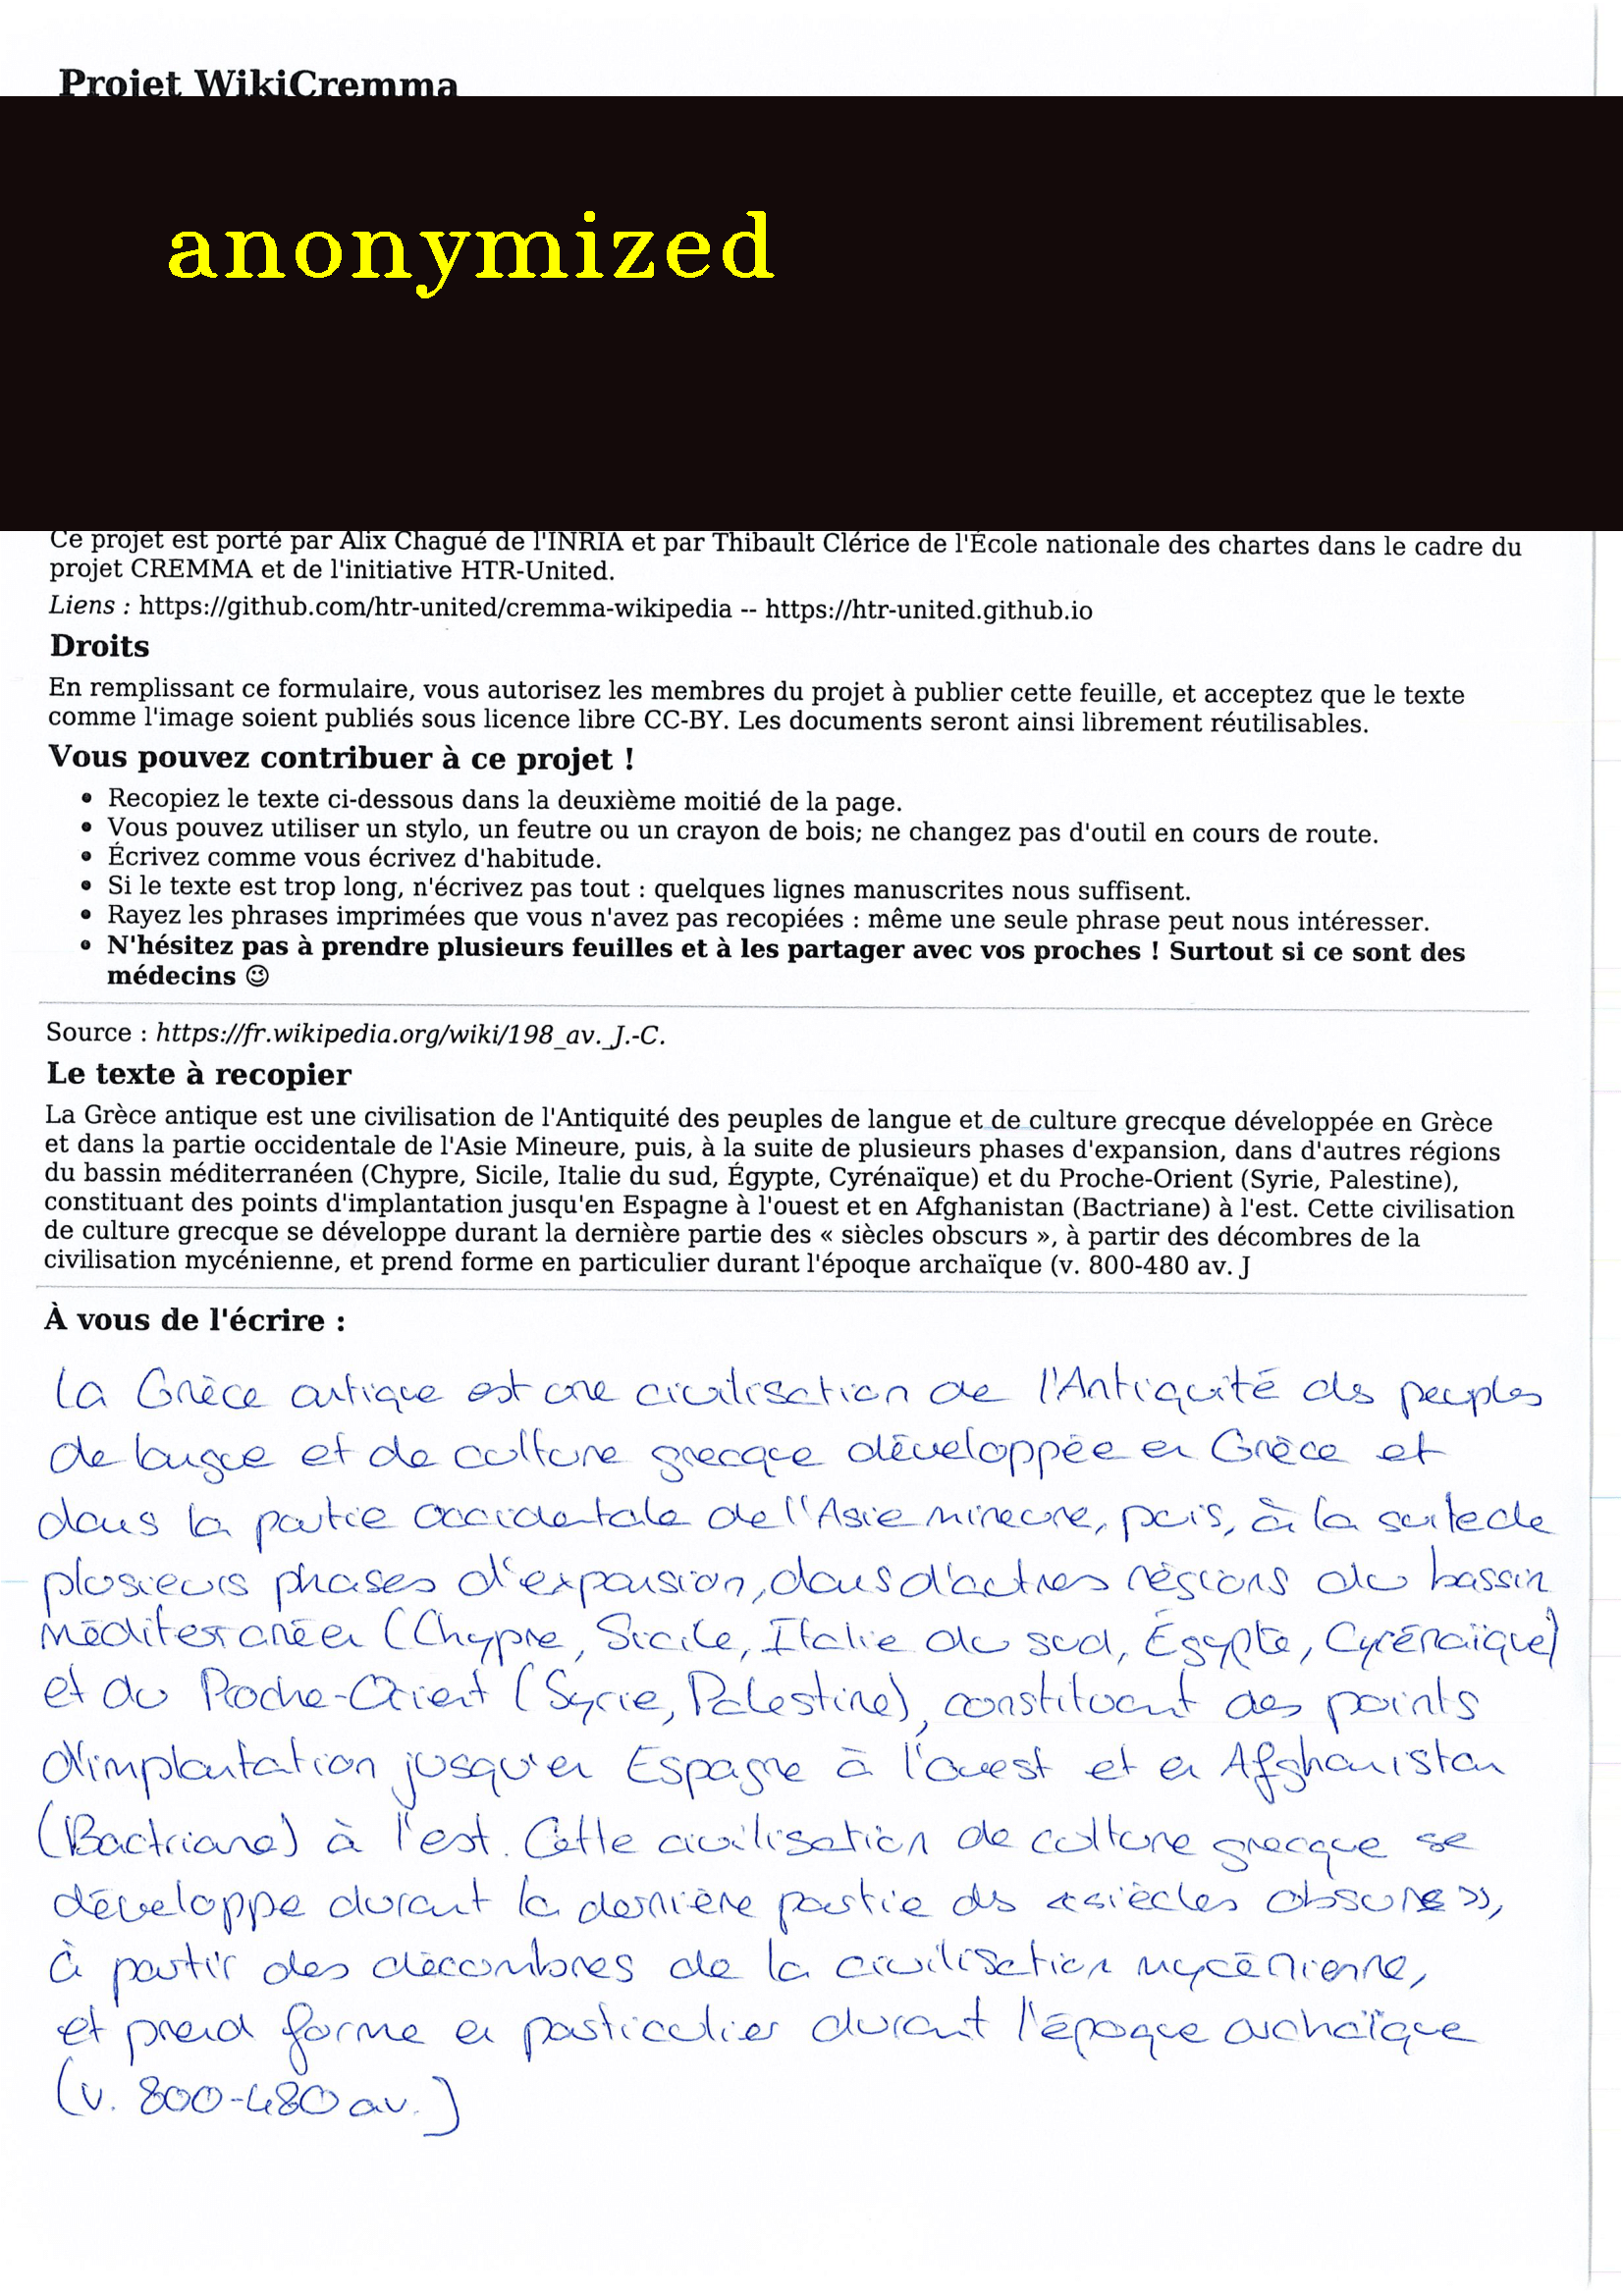 Projet WikiCremma
anonymized
Ce projet est porté par Alix Chagué de l'INRIA et par Thibault Clérice de l'École nationale des chartes dans le cadre du
projet CREMMA et de l'initiative HTR-United.
Liens : https://github.com/htr-united/cremma-wikipedia -- https://htr-united.github.io
Droits
En remplissant ce formulaire, vous autorisez les membres du projet à publier cette feuille, et acceptez que le texte
comme l'image soient publiés sous licence libre CC-BY. Les documents seront ainsi librement réutilisables.
Vous pouvez contribuer à ce projet !
• Recopiez le texte ci-dessous dans la deuxième moitié de la page.
• Vous pouvez utiliser un stylo, un feutre ou un crayon de bois; ne changez pas d'outil en cours de route.
• Écrivez comme vous écrivez d'habitude.
• Si le texte est trop long, n'écrivez pas tout : quelques lignes manuscrites nous suffisent.
• Rayez les phrases imprimées que vous n'avez pas recopiées : même une seule phrase peut nous intéresser.
• N'hésitez pas à prendre plusieurs feuilles et à les partager avec vos proches ! Surtout si ce sont des
médecins 😉
Source : https://fr.wikipedia.org/wiki/198_av._J.-C.
Le texte à recopier
La Grèce antique est une civilisation de l'Antiquité des peuples de langue et de culture grecque développée en Grèce
et dans la partie occidentale de l'Asie Mineure, puis, à la suite de plusieurs phases d'expansion, dans d'autres régions
du bassin méditerranéen (Chypre, Sicile, Italie du sud, Égypte, Cyrénaïque) et du Proche-Orient (Syrie, Palestine),
constituant des points d'implantation jusqu'en Espagne à l'ouest et en Afghanistan (Bactriane) à l'est. Cette civilisation
de culture grecque se développe durant la dernière partie des « siècles obscurs », à partir des décombres de la
civilisation mycénienne, et prend forme en particulier durant l'époque archaïque (v. 800-480 av. J
À vous de l'écrire :
La Grèce antique est une civilisation de l'Antiquité des peuples
de langue et de culture grecque développée en Grèce et
dans la partie occidentale de l'Asie mineure, puis, à la suite de
plusieurs phases d'expansion, dans d'autres régions du bassin
méditerranéen (Chypre, Sicile, Italie du sud, Égypte, Cyrénaïque)
et du Proche-Orient (Syrie, Palestine), constituant des points
d'implantation jusqu'en Espagne à l'ouest et en Afghanistan
(Bactriane) à l'est. Cette civilisation de culture grecque se
développe durant la dernière partie des « siècles obscurs »,
à partir des décombres de la civilisation mycénienne,
et prend forme en particulier durant l'époque archaïque
(v. 800-480 av. J